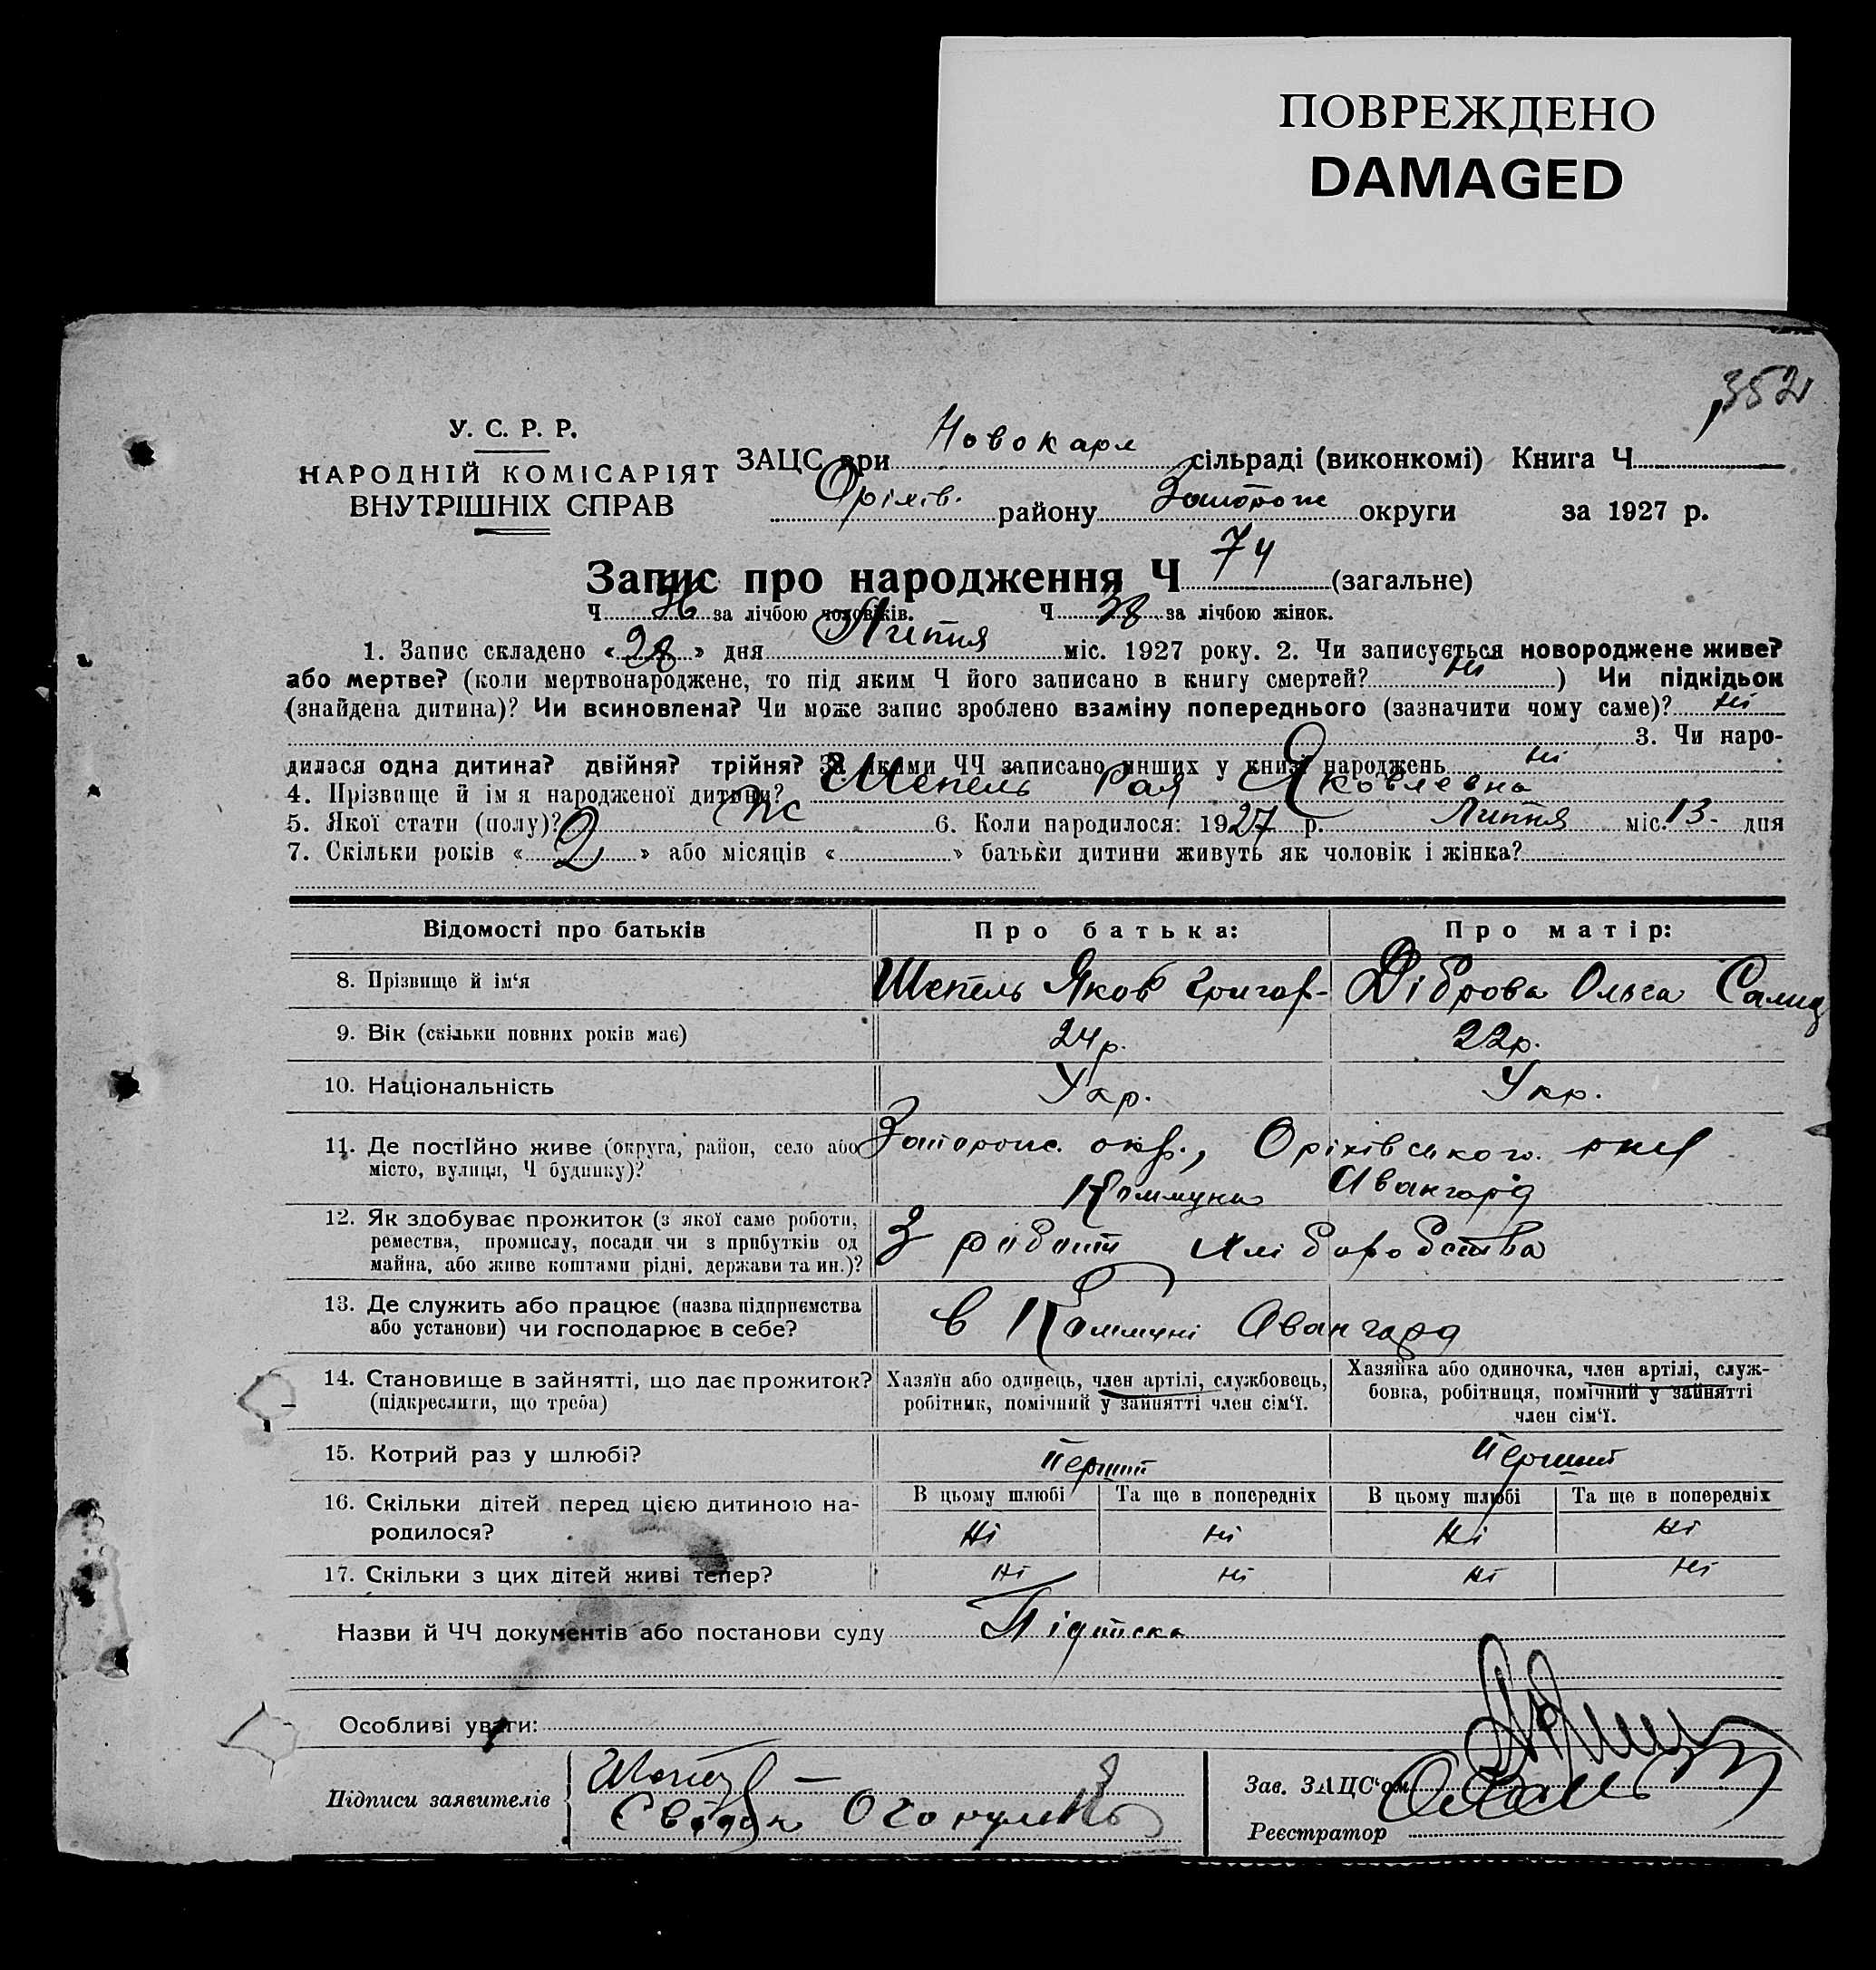 ПОВРЕЖДЕНО
DAMAGED
352
У. С. Р. Р.
НАРОДНІЙ КОМІСАРІЯТ
ВНУТРІШНІХ СПРАВ
ЗАЦС при Новокарл сільраді (виконкомі) Книга Ч
Оріхів. району Запорож округи за 1927 р.
Запис про народження Ч 74 (загальне)
Ч 36 за лічбою чоловіків. Ч 38 за лічбою жінок.
1. Запис складено « 28 » дня Липня міс. 1927 року. 2. Чи записується новороджене живе?
або мертве? (коли мертвонароджене, то під яким Ч його записано в книгу смертей? Ні ) Чи підкідьок
(знайдена дитина)? Чи всиновлена? Чи може запис зроблено взаміну попереднього (зазначити чому саме)? Ні
3. Чи наро-
дилася одна дитина? двійня? трійня? За якими ЧЧ записано инших у книзі народжень Ні
4. Прізвище й імя народженої дитини? Шепель Рая Яковлевна
5. Якої стати (полу)? Ж 6. Коли народилося: 1927 р. Липня міс. 13- дня
7. Скільки років « 2 » або місяців « » батьки дитини живуть як чоловік і жінка?
Відомості про батьків Про батька: Про матір:
8. Прізвище й ім‘я Шепель Яков Григор- Діброва Ольга
9. Вік (скільки повних років має) 24р. 22р.
10. Національність Укр. Укр.
11. Де постійно живе (округа, район, село або Запорож. окр., Оріхівського
місто, вулиця, Ч будинку)? Коммуна Авангард
12. Як здобуває прожиток (з якої саме роботи,
ремества, промислу, посади чи з прибутків од З роботи хліборобства
майна, або живе коштами рідні, держави та ин.)?
13. Де служить або працює (назва підприємства
або установи) чи господарює в себе? в Коммуні Авангард
14. Становище в зайнятті, що дає прожиток? Хазяїн або одинець, член артілі, службовець, Хазяйка або одиночка, член артілі, служ-
(підкреслити, що треба) робітник, помічний у зайнятті член сім‘ї. бовка, робітниця, помічний у зайнятті
член сім‘ї.
15. Котрий раз у шлюбі? Перший Перший
16. Скільки дітей перед цією дитиною на- В цьому шлюбі Та ще в попередніх В цьому шлюбі Та ще в попередніх
родилося? Ні Ні Ні Ні
17. Скільки з цих дітей живі тепер? Ні Ні Ні Ні
Назви й ЧЧ документів або постанови суду Підписка
Особливі уваги:
Підписи заявителів
Зав. ЗАЦС‘ом
Реєстратор